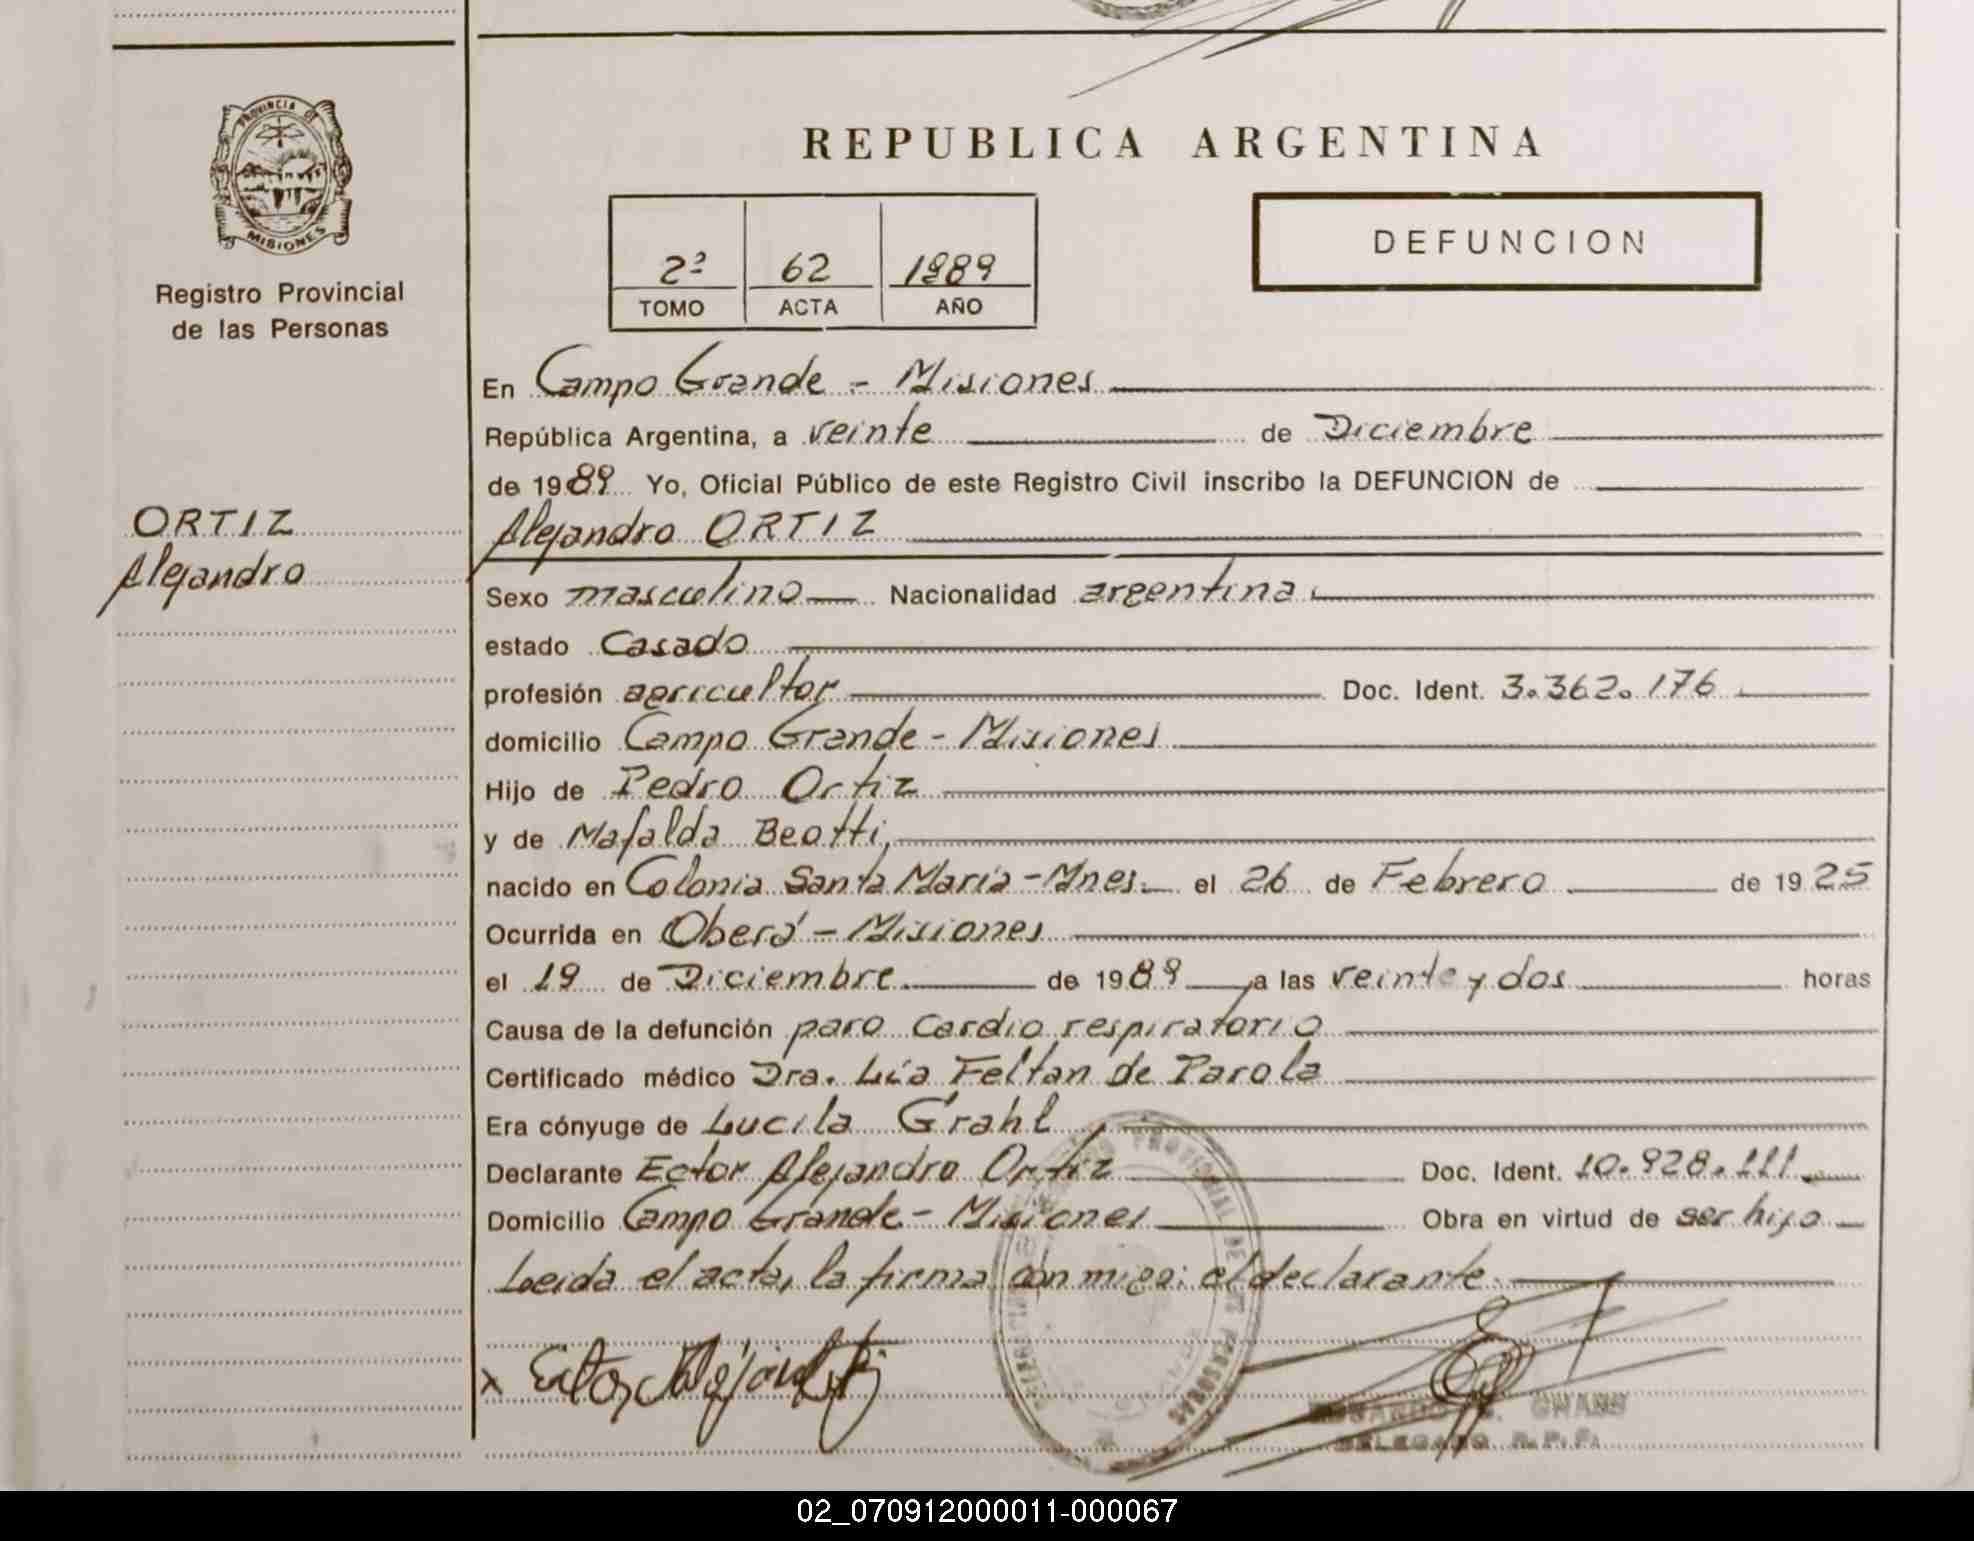 PROVINCIA DE
MISIONES
Registro Provincial
de las Personas
ORTIZ
Alejandro
REPUBLICA ARGENTINA
2º 62 1989
TOMO ACTA AÑO
DEFUNCION
En Campo Grande - Misiones
República Argentina, a veinte de Diciembre
de 1989 Yo, Oficial Público de este Registro Civil inscribo la DEFUNCION de
Alejandro ORTIZ
Sexo masculino Nacionalidad argentina
estado Casado
profesión agricultor Doc. Ident. 3.362.176
domicilio Campo Grande - Misiones
Hijo de Pedro Ortiz
y de Mafalda Beotti
nacido en Colonia Santa María - Mnes. el 26 de Febrero de 1925
Ocurrida en Oberá - Misiones
el 19 de Diciembre de 1989 a las veinte y dos horas
Causa de la defunción paro Cardio respiratorio
Certificado médico Dra. Lía Feltan de Parola
Era cónyuge de Lucila Grahl
Declarante Ector Alejandro Ortiz Doc. Ident. 10.928.111
Domicilio Campo Grande - Misiones Obra en virtud de ser hijo
Leida el acta, la firma con migo: el declarante
x Ector Alejandro
DELEGADO R.P.P.
02_070912000011-000067